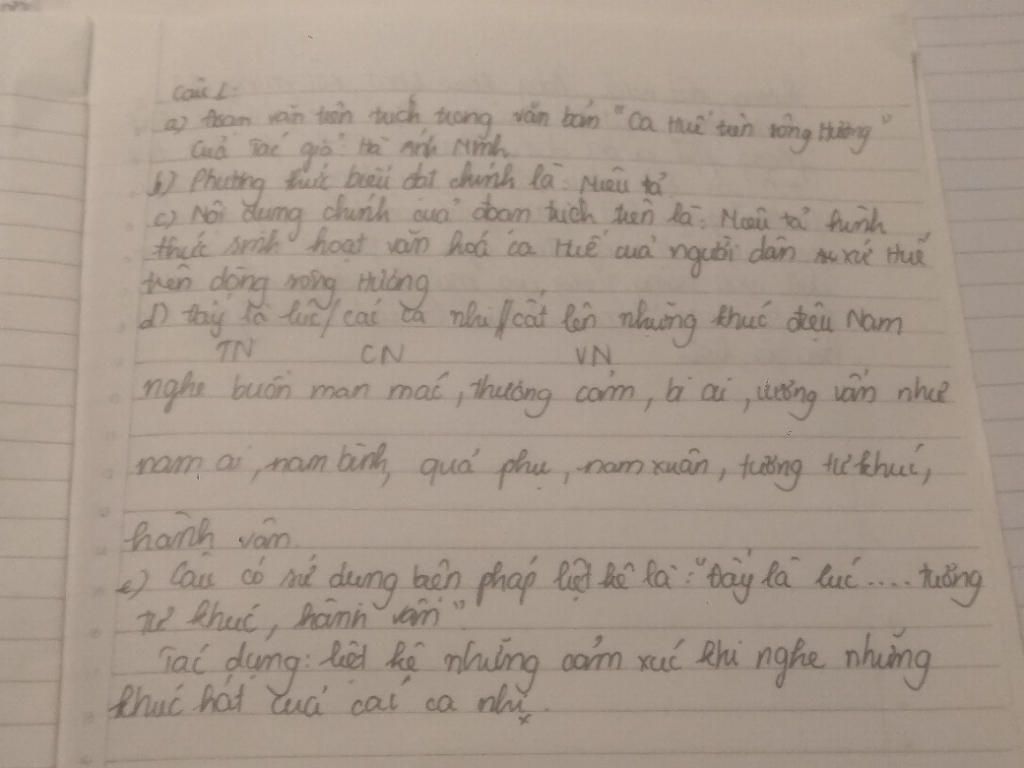 Câu 1:
a) Đoạn văn trên trích trong văn bản "Ca Huế trên sông Hương"
của tác giả: Hà Ánh Minh
b) Phương thức biểu đạt chính là: Miêu tả
c) Nội dung chính của đoạn trích trên là: Miêu tả hình
thức sinh hoạt văn hoá ca Huế của người dân xứ Huế
trên dòng sông Hương
d) Đây là lúc/các ca nhi//cất lên những khúc điệu Nam
TN CN VN
nghe buồn man mác, thương cảm, bi ai, vương vấn như
nam ai, nam bình, quả phụ, nam xuân, tương tư khúc,
hành vân.
e) Câu có sử dụng biện pháp liệt kê là: "Đây là lúc..... tương
tư khúc, hành vân".
Tác dụng: liệt kê những cảm xúc khi nghe những
khúc hát của các ca nhi.